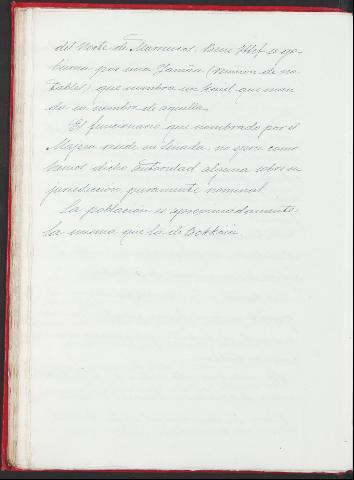 del Norte de Marruecos, Beni Ittef se go-
bierna por una Yemáa (reunion de no-
tables) que nombra un Kaid que man-
da en nombre de aquella.
El funcionario que nombrado por el
Majzen reside en Senada no ejerce como
hemos dicho autoridad alguna sobre su
jurisdicción puramente nominal
La población es aproximadamente
la misma que la de Bokkoia.